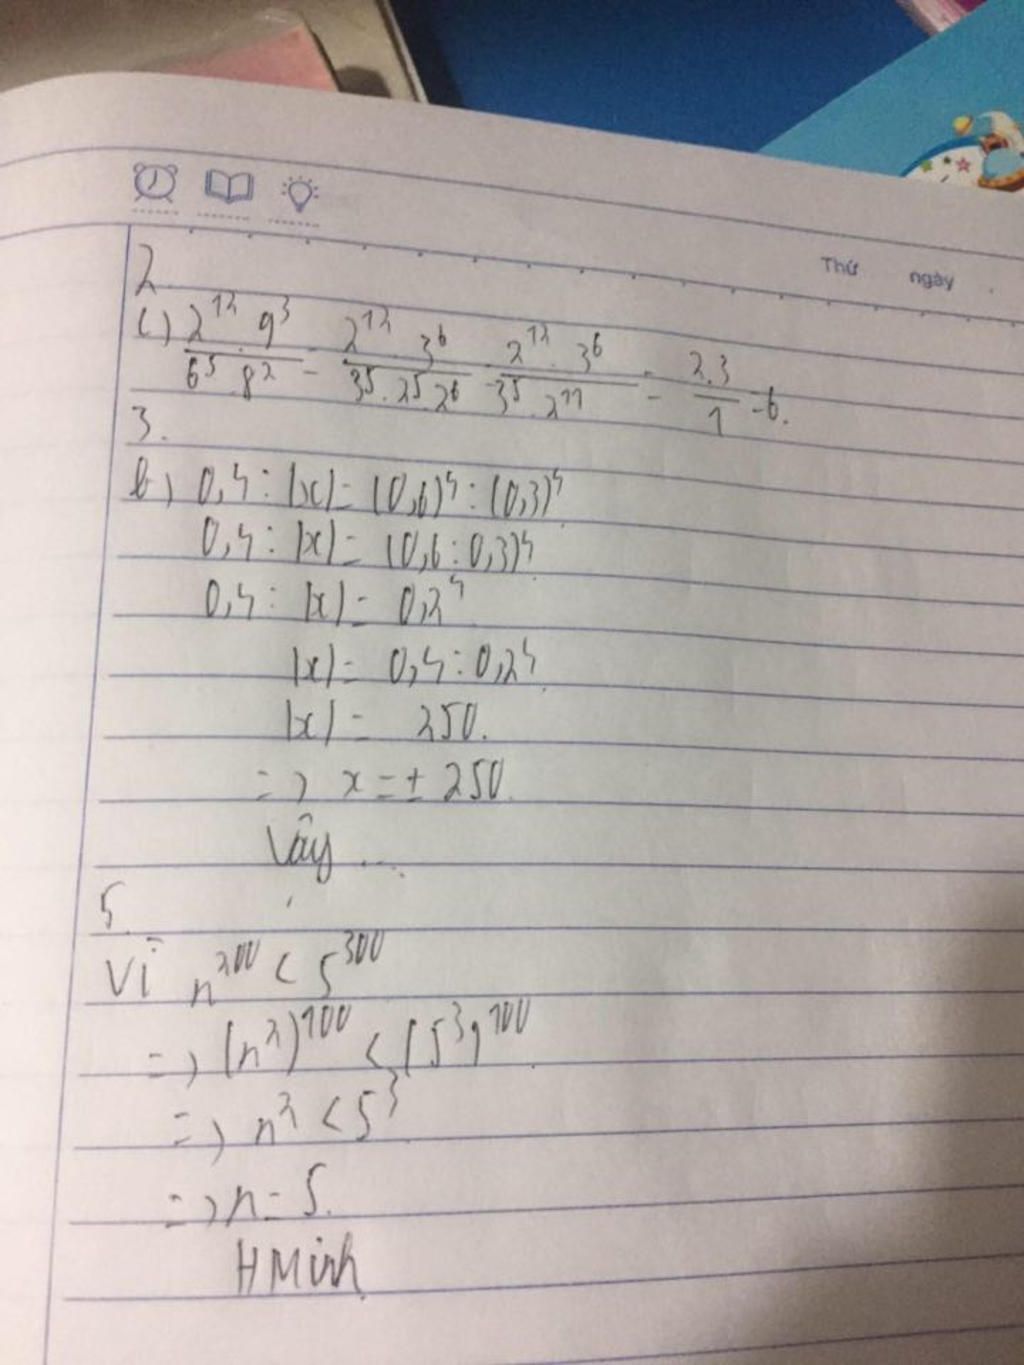 Thứ ngày
2
c) 2¹² . 9³ / 6⁵ . 8² = 2¹² . 3⁶ / 3⁵ . 2⁵ . 2⁶ = 2¹² . 3⁶ / 3⁵ . 2¹¹ = 2.3 / 1 = 6.
3.
b) 0,4 : |x| = (0,6)⁴ : (0,3)⁴
0,4 : |x| = (0,6 : 0,3)⁴
0,4 : |x| = 0,2⁴
|x| = 0,4 : 0,2⁴
|x| = 250.
=> x = ± 250.
Vậy ...
5.
Vì n²⁰⁰ < 5³⁰⁰
=> (n²)¹⁰⁰ < (5³)¹⁰⁰
=> n² < 5³
=> n = 5.
HMinh